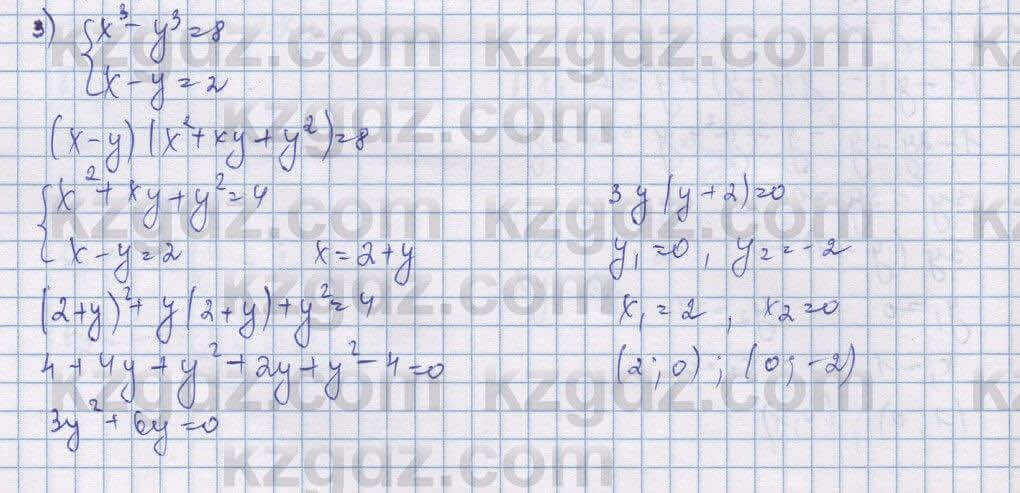 3) { x³ - y³ = 8
x - y = 2
(x-y)(x²+xy+y²)=8
{ x² + xy + y² = 4
x - y = 2    x = 2 + y
(2+y)² + y(2+y) + y² = 4
4 + 4y + y² + 2y + y² - 4 = 0
3y² + 6y = 0
3y(y+2)=0
y₁ = 0, y₂ = -2
x₁ = 2, x₂ = 0
(2; 0); (0; -2)
kzgdz.com
kzgdz.com
kzgdz.com
kzgdz.com
kzgdz.com
kzgdz.com